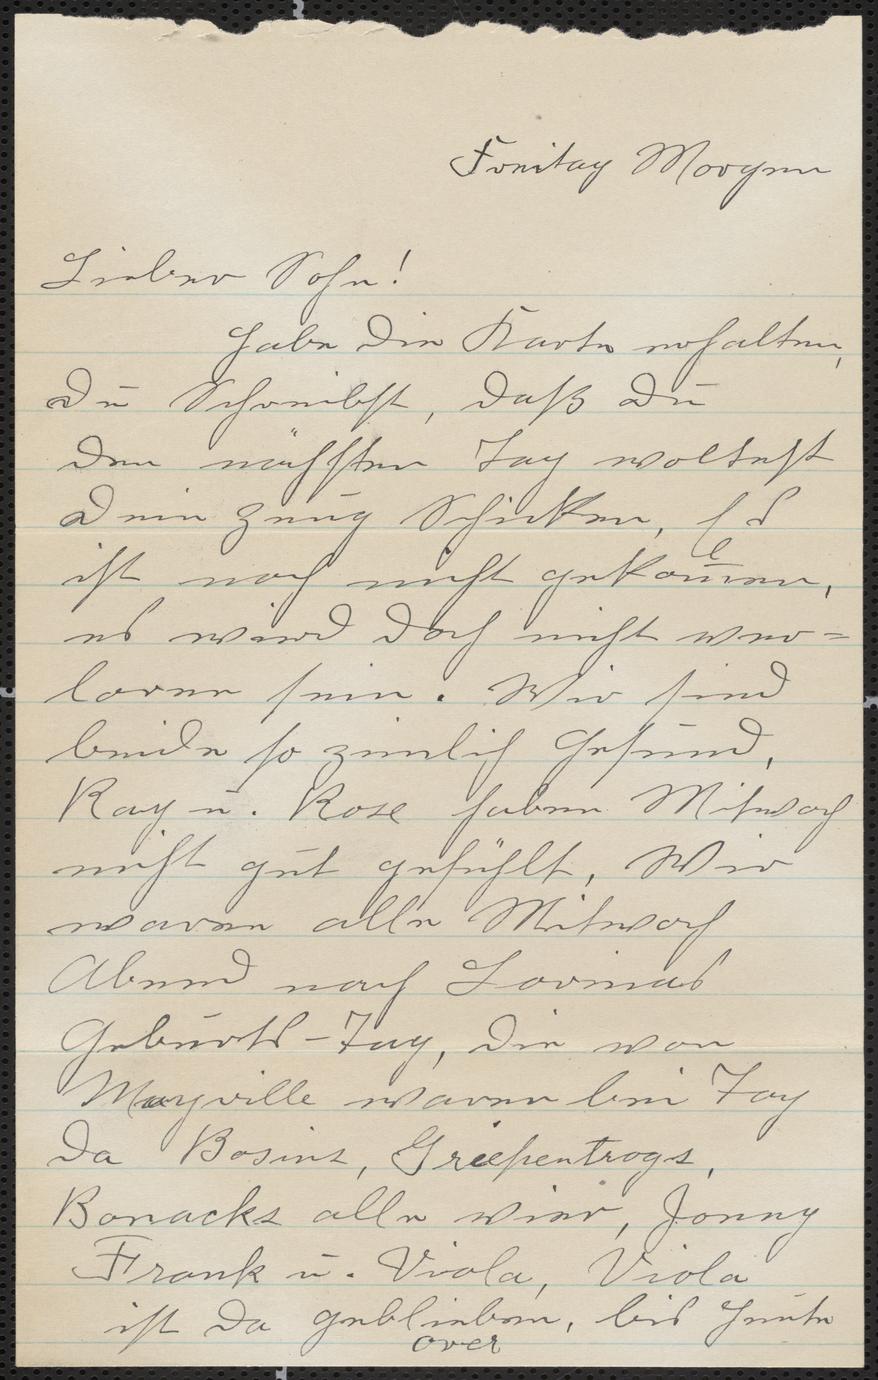 Freitag Morgen
Lieber Sohn!
Habe Die Karte erhalten,
Du Schreibst, daß Du
den nächsten Tag woltest
Dein zeug Schicken, Es
ist noch nicht gekom̅en,
es wird doch nicht wer=
loren sein. Wir sind
beide so zimlich Gesund,
Ray u. Rose haben Mitwoch
nicht gut gefühlt, Wir
waren alle Mitwoch
Abend nach Lorinas
Geburts-Tag, die von
Mayville waren bei Tag
da Bosins, Griepentrogs,
Bonacks alle vier, Jonny
Frank u. Viola, Viola
ist da geblieben, bis Heute
over